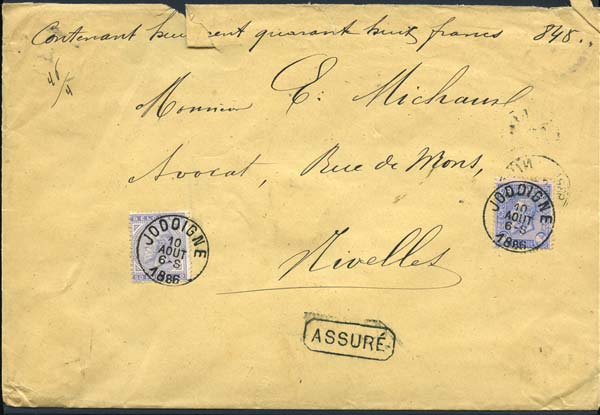 Contenant huit cent quarant huit francs 848.,
Monsieur E. Michaux
Avocat, Rue de Mons,
Nivelles
JODOIGNE
10
AOUT
6-S
1886
JODOIGNE
10
AOUT
6-S
1886
ASSURÉ